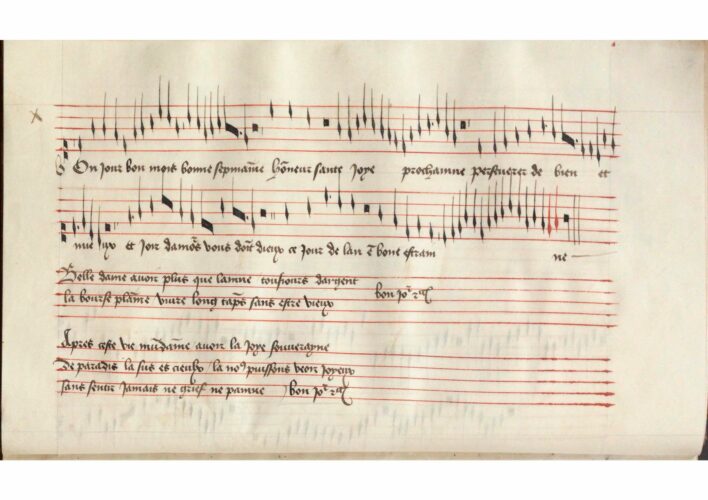 On Jour bon mois bonne sepmaine hõneur sante Joye prochainne perseverer de bien et
mieulx et Joir damo's vous doit dieux ce Jour de lan ē bone estrainne
Belle dame avoir plus que laine tousiours dargent
la bourse plaine vivre long tãps sans estre vieux bon jor
Apres ceste vie mũdaine avoir la Joye souverayne
De paradis la sus es cieulx la no9 puissons veoir Joyeux
sans sentir Jamais ne grief ne painne bon jor